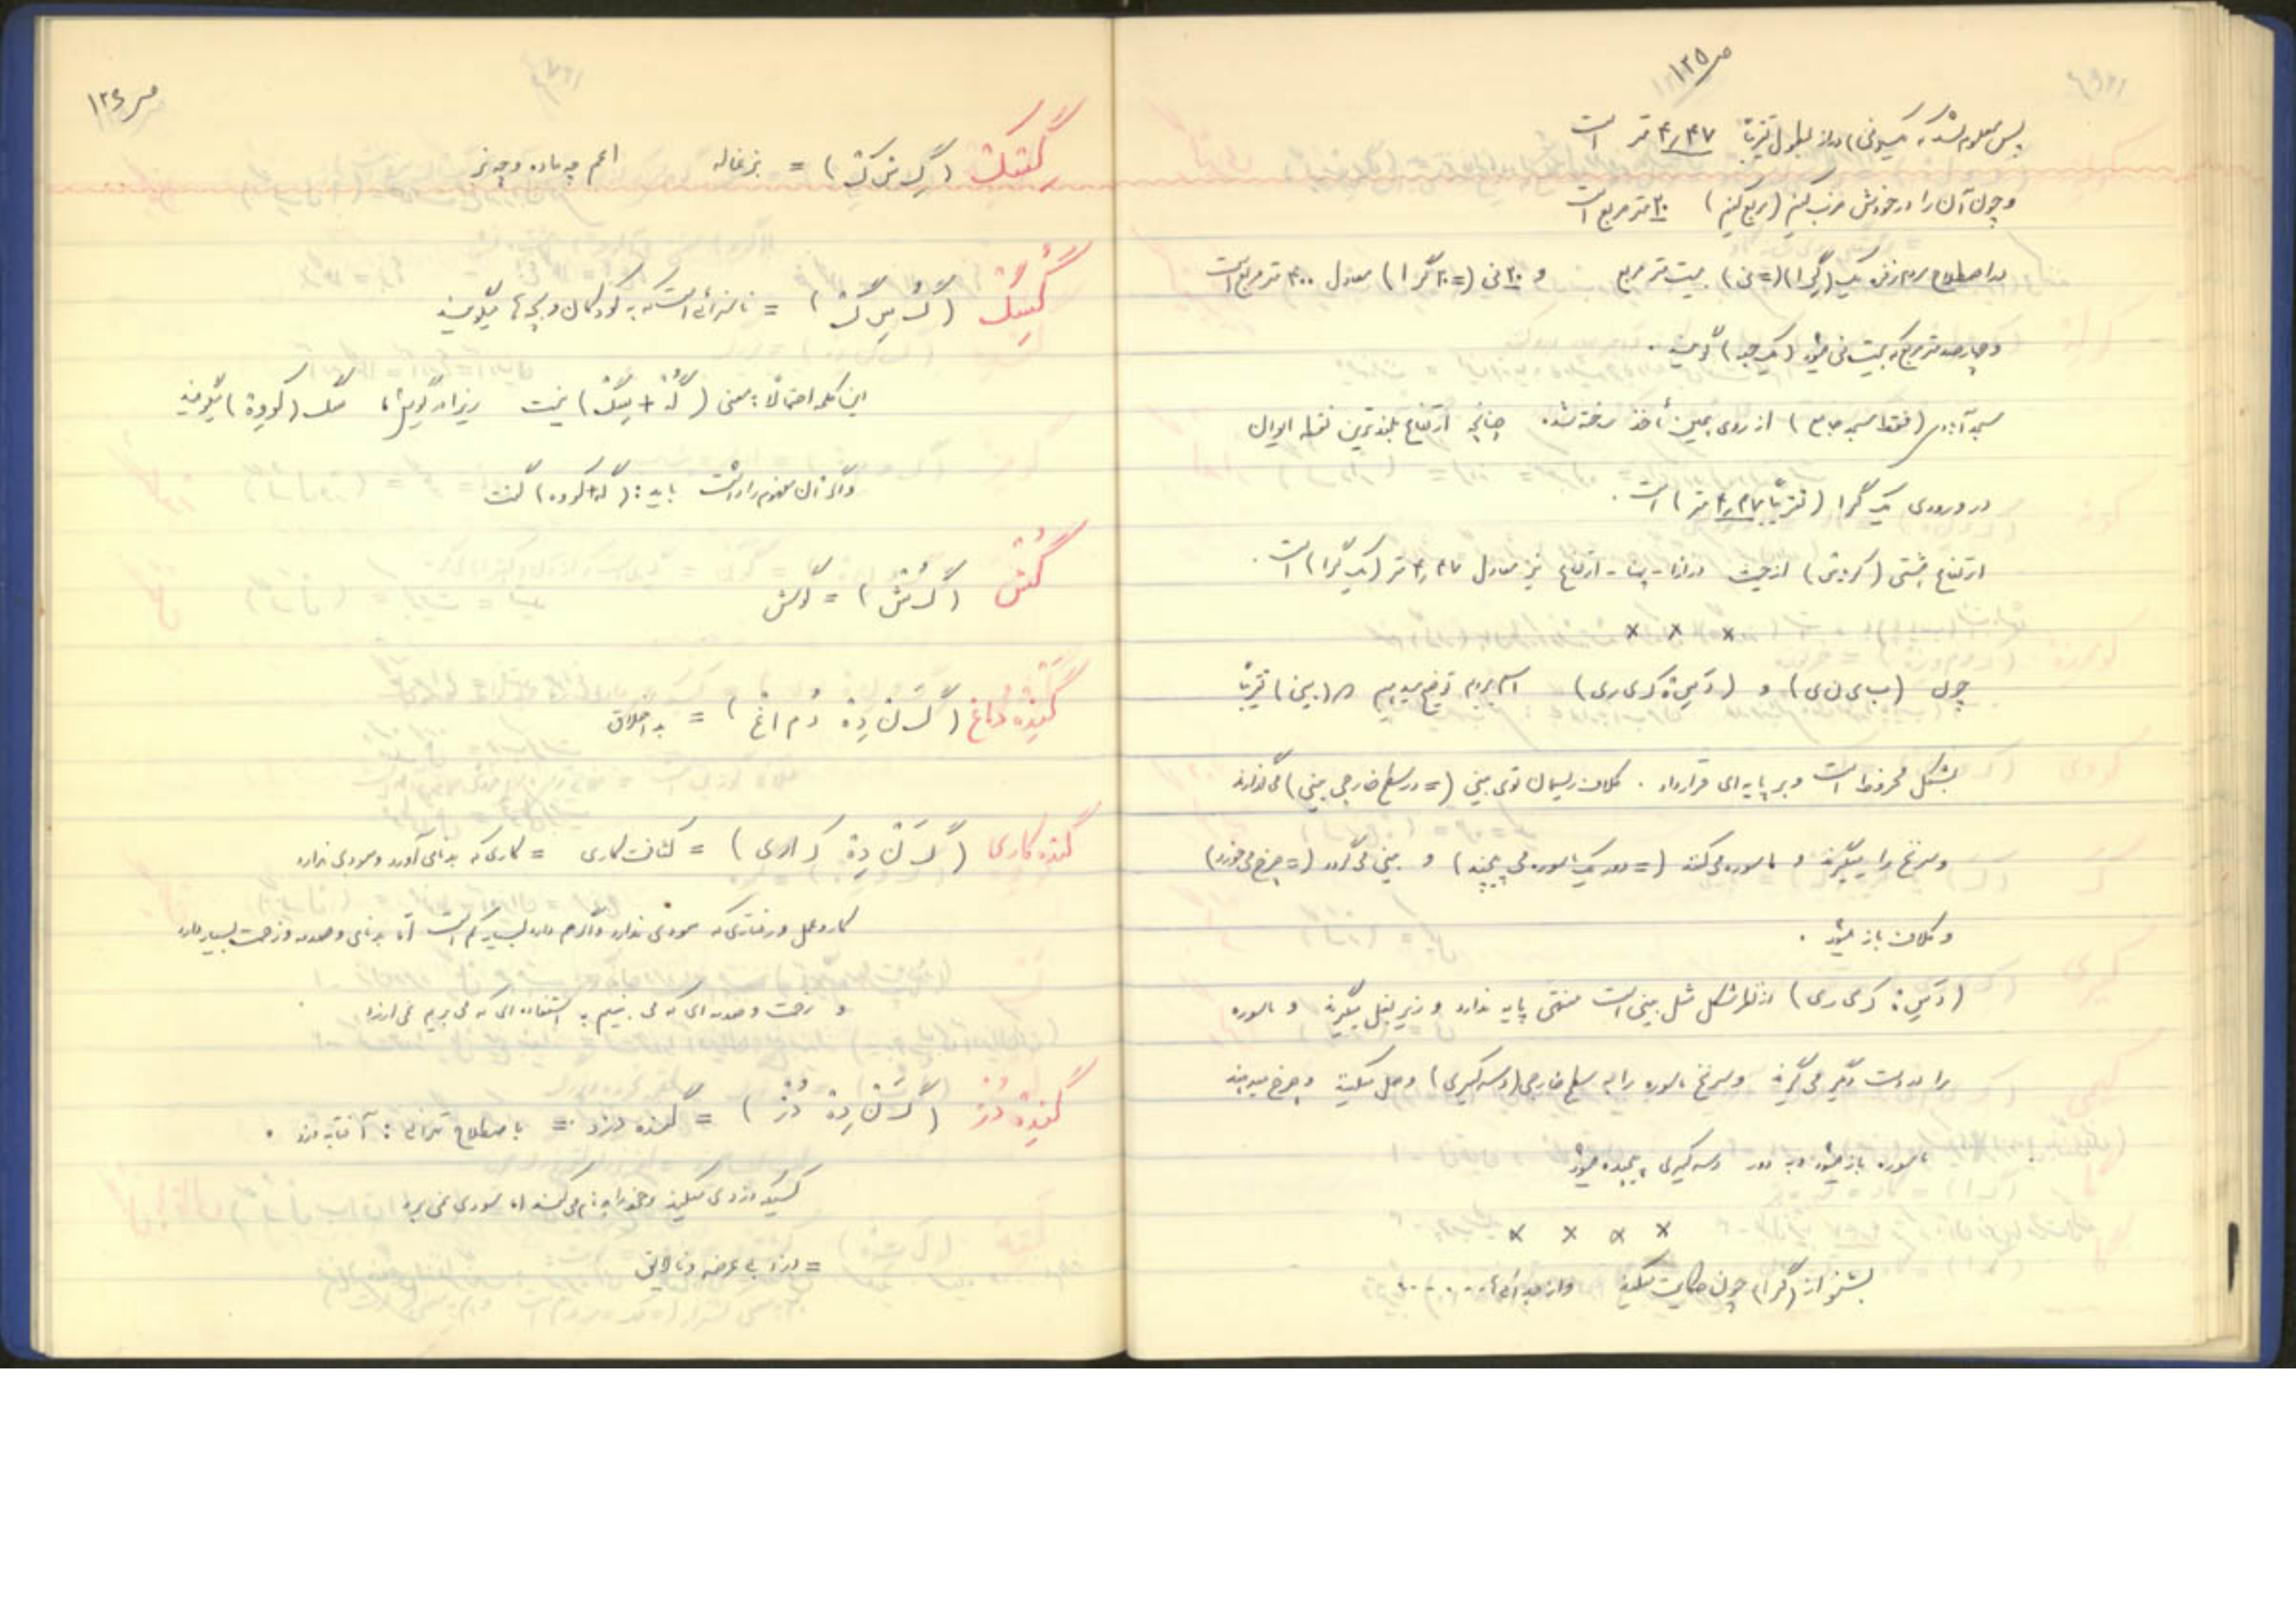 ص ۱۲۵
پس معلوم شد که یک (نی) دراز بطول تقریباً ۴٫۴۷ متر است
و چون آن را در خودش ضرب کنیم (مربع کنیم) ۲۰ متر مربع است
به اصطلاح مردم زفره یک (گِرا) (= نی) بیست متر مربع و ۲۰ نی (= ۲۰ گرا) معادل ۴۰۰ متر مربع است
و چهارصد متر مربع که بیست نی میشود (یک جو) گویند .
مسجد (فقط مسجد جامع) از روی همین مأخذ ساخته شده . چنانچه ارتفاع بلندترین نقطه ایوان
در ورودی یک گرا (تقریباً ۴٫۴۷ متر) است .
ارتفاع از حیث درازا - پهنا - ارتفاع نیز معادل ۴٫۴۷ متر (یک گرا) است .
× × ×
چون (ب ی ن ی) و اسم بردیم توضیح میدهیم که (بینی) تقریباً
بشکل مخروط است و بر پایه ای قرار دارد . کلاف ریسمان توی بینی (= در سطح خارجی بینی) می گذارند
و سر نخ را میگیرند و ماسوره می کنند (= دور یک ماسوره می پیچند) و بینی می گردد (= چرخ می خورد)
و کلاف باز میشود .
از نظر شکل مثل بینی است منتهی پایه ندارد و زیر بغل میگیرند و ماسوره
را بدست دیگر می گیرند و سر نخ ماسوره را به سطح خارجی وصل میکنند و چرخ میدهند
ماسوره باز میشود و به دور پیچیده میشود
× × × ×
بشنو از (گرا) چون حکایت میکند و از جدائی ها . . . . .
ص ۱۲۶
= بزغاله اعم چه ماده و چه نر
= ناسزائی است که به کودکان و بچه ها میگویند
این کلمه احتمالاً بمعنی نیست زیرا در گویش ما سگ (کویه) میگویند
و اگر آن مفهوم را داشت باید : گفت
گُش (گ ُ ش) = گوش
گَنده دماغ (گ َ ن دِه دُ م ا غ) = بد اخلاق
گنده کاری (گ َ ن دِه ک ا ر ی) = کثافت کاری = کاری که بدنامی آورد و سودی ندارد
کار و عمل و رفتاری که سودی ندارد و اگر هم دارد بسیار کم است اما بدنامی و صدمه و زحمت بسیار دارد
و زحمت و صدمه ای که می بینیم به استفاده ای که می بریم نمی ارزد .
گَنده دُز (گ َ ن دِه دُ ز) = گنده دزد = باصطلاح تهرانی : آفتابه دزد .
کسیکه دزدی میکند و خود را بدنام می کند اما سودی نمی برد
= دزد بی عرضه و نالایق